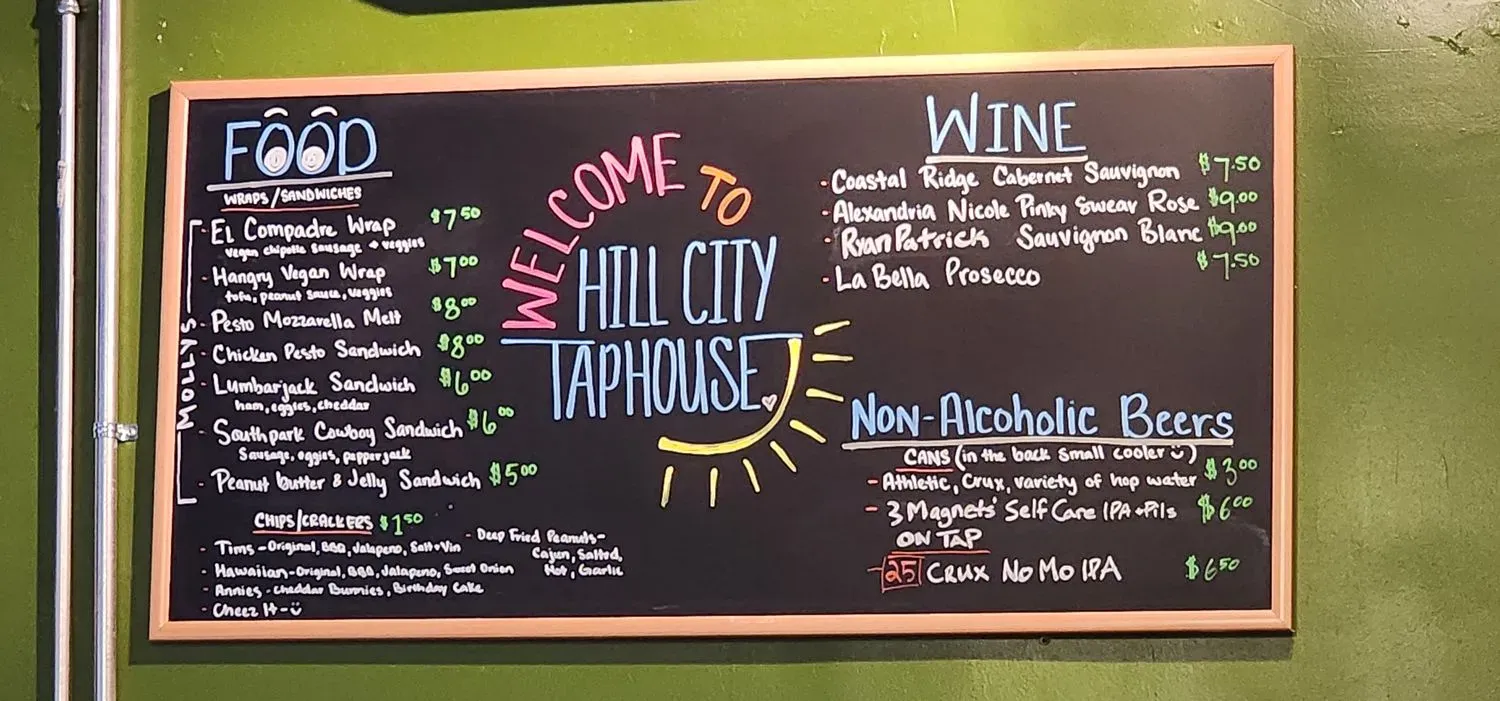 FOOD
WRAPS/SANDWICHES
MOLLYS
- El Compadre Wrap $7.50
vegan chipotle sausage + veggies
- Hangry Vegan Wrap $7.00
tofu, peanut sauce, veggies
- Pesto Mozzarella Melt $8.00
- Chicken Pesto Sandwich $8.00
- Lumbarjack Sandwich $6.00
ham, eggies, cheddar
- Southpark Cowboy Sandwich $6.00
Sausage, eggies, pepperjack
- Peanut butter & Jelly Sandwich $5.00
CHIPS/CRACKERS $1.50
- Tims - Original, BBQ, Jalapeno, Salt+Vin
- Hawaiian - Original, BBQ, Jalapeno, Sweet Onion
- Annies - Cheddar Bunnies, Birthday Cake
- Cheez It -
- Deep Fried Peanuts -
Cajun, Salted,
Hot, Garlic
WELCOME TO
HILL CITY
TAPHOUSE
WINE
- Coastal Ridge Cabernet Sauvignon $7.50
- Alexandria Nicole Pinky Swear Rose $9.00
- Ryan Patrick Sauvignon Blanc $9.00
- La Bella Prosecco $7.50
NON-Alcoholic Beers
CANS (in the back small cooler)
- Athletic, Crux, variety of hop water $3.00
- 3 Magnets' Self Care IPA + Pils $6.00
ON TAP
- 25 CRUX NO MO IPA $6.50